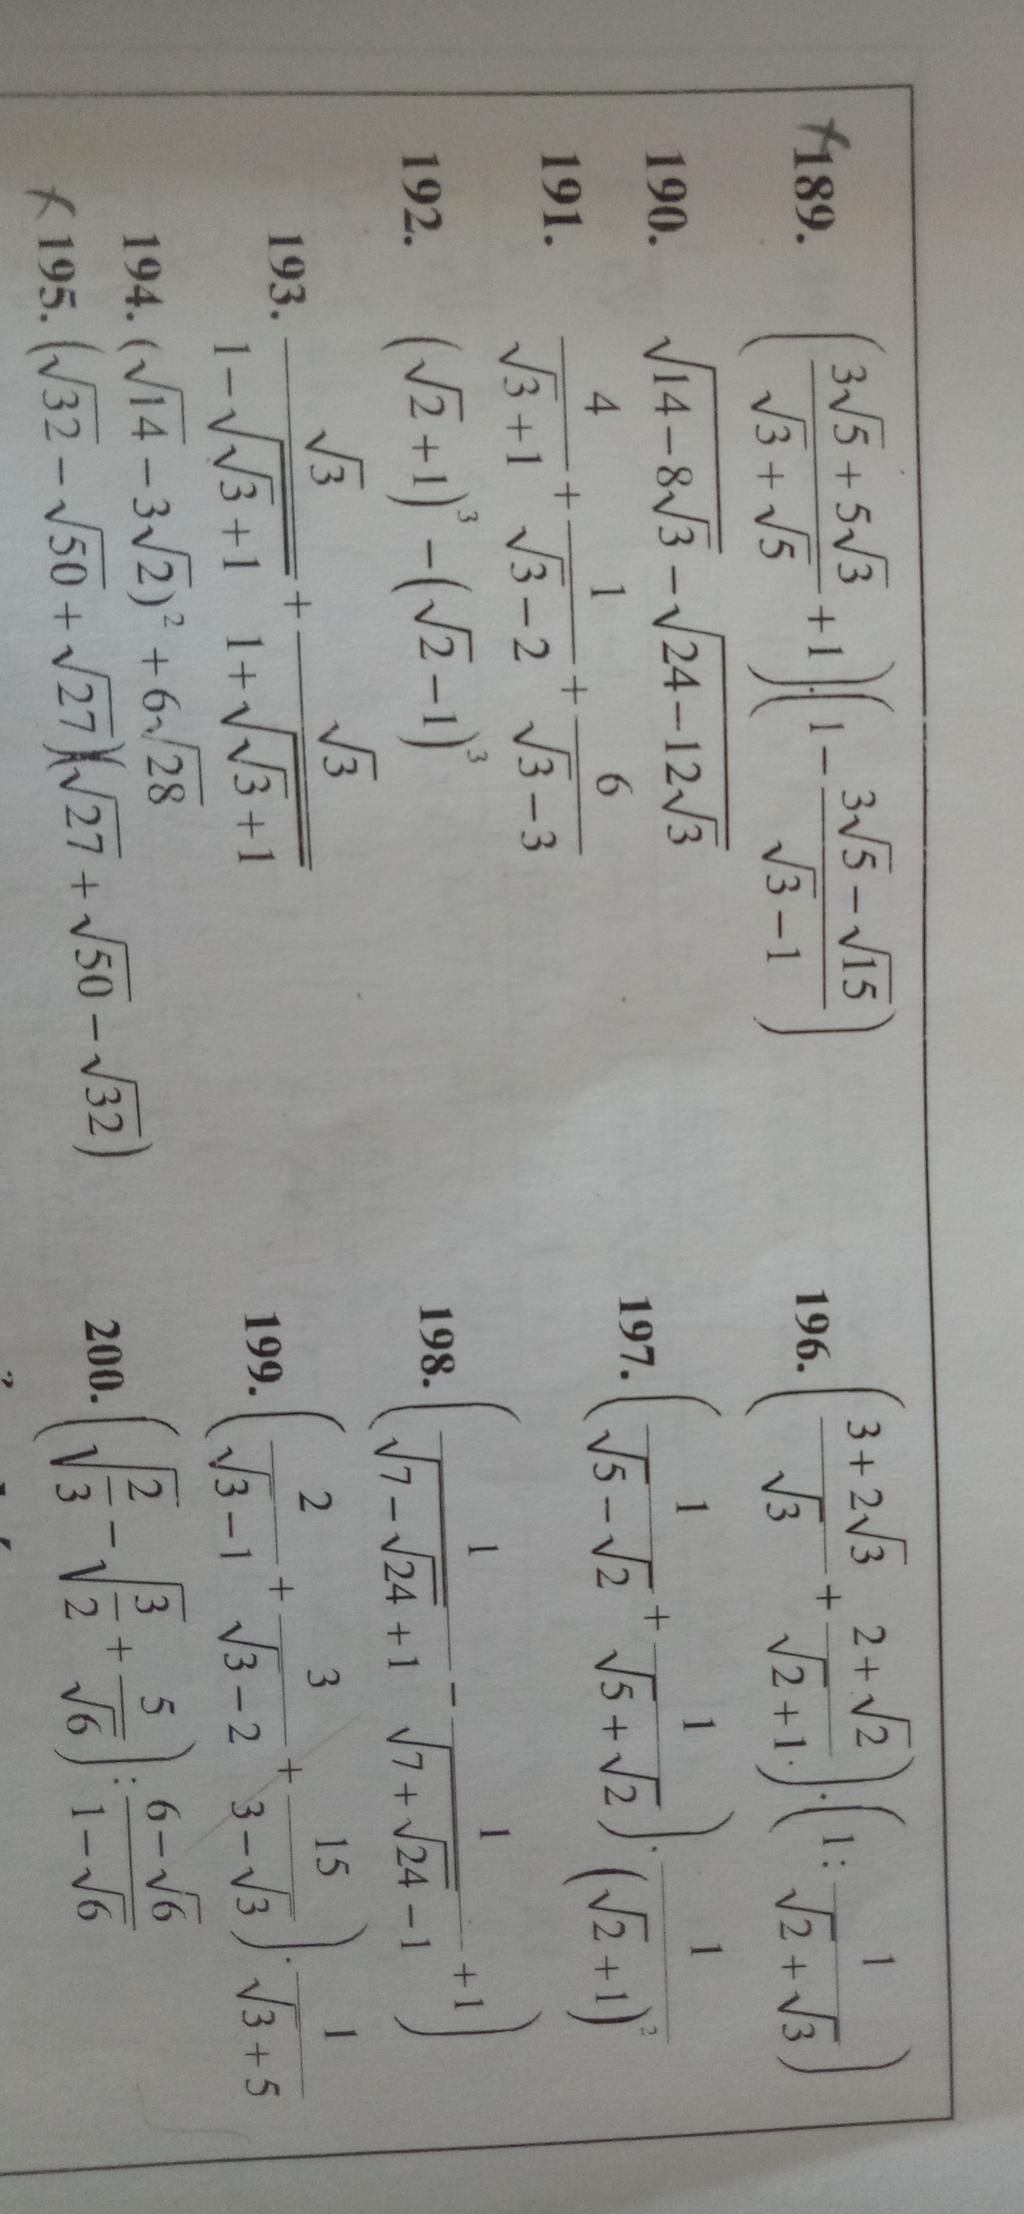 189. $\left(\frac{3\sqrt{5}+5\sqrt{3}}{\sqrt{3}+\sqrt{5}}+1\right)\cdot\left(1-\frac{3\sqrt{5}-\sqrt{15}}{\sqrt{3}-1}\right)$
190. $\sqrt{14-8\sqrt{3}}-\sqrt{24-12\sqrt{3}}$
191. $\frac{4}{\sqrt{3}+1}+\frac{1}{\sqrt{3}-2}+\frac{6}{\sqrt{3}-3}$
192. $(\sqrt{2}+1)^3-(\sqrt{2}-1)^3$
193. $\frac{\sqrt{3}}{1-\sqrt{\sqrt{3}+1}}+\frac{\sqrt{3}}{1+\sqrt{\sqrt{3}+1}}$
194. $(\sqrt{14}-3\sqrt{2})^2+6\sqrt{28}$
195. $(\sqrt{32}-\sqrt{50}+\sqrt{27})(\sqrt{27}+\sqrt{50}-\sqrt{32})$
196. $\left(\frac{3+2\sqrt{3}}{\sqrt{3}}+\frac{2+\sqrt{2}}{\sqrt{2}+1}\right)\cdot\left(1:\frac{1}{\sqrt{2}+\sqrt{3}}\right)$
197. $\left(\frac{1}{\sqrt{5}-\sqrt{2}}+\frac{1}{\sqrt{5}+\sqrt{2}}\right)\cdot\frac{1}{(\sqrt{2}+1)^2}$
198. $\left(\frac{1}{\sqrt{7-\sqrt{24}}+1}-\frac{1}{\sqrt{7+\sqrt{24}}-1}+1\right)$
199. $\left(\frac{2}{\sqrt{3}-1}+\frac{3}{\sqrt{3}-2}+\frac{15}{3-\sqrt{3}}\right)\cdot\frac{1}{\sqrt{3}+5}$
200. $\left(\sqrt{\frac{2}{3}}-\sqrt{\frac{3}{2}}+\frac{5}{\sqrt{6}}\right):\frac{6-\sqrt{6}}{1-\sqrt{6}}$